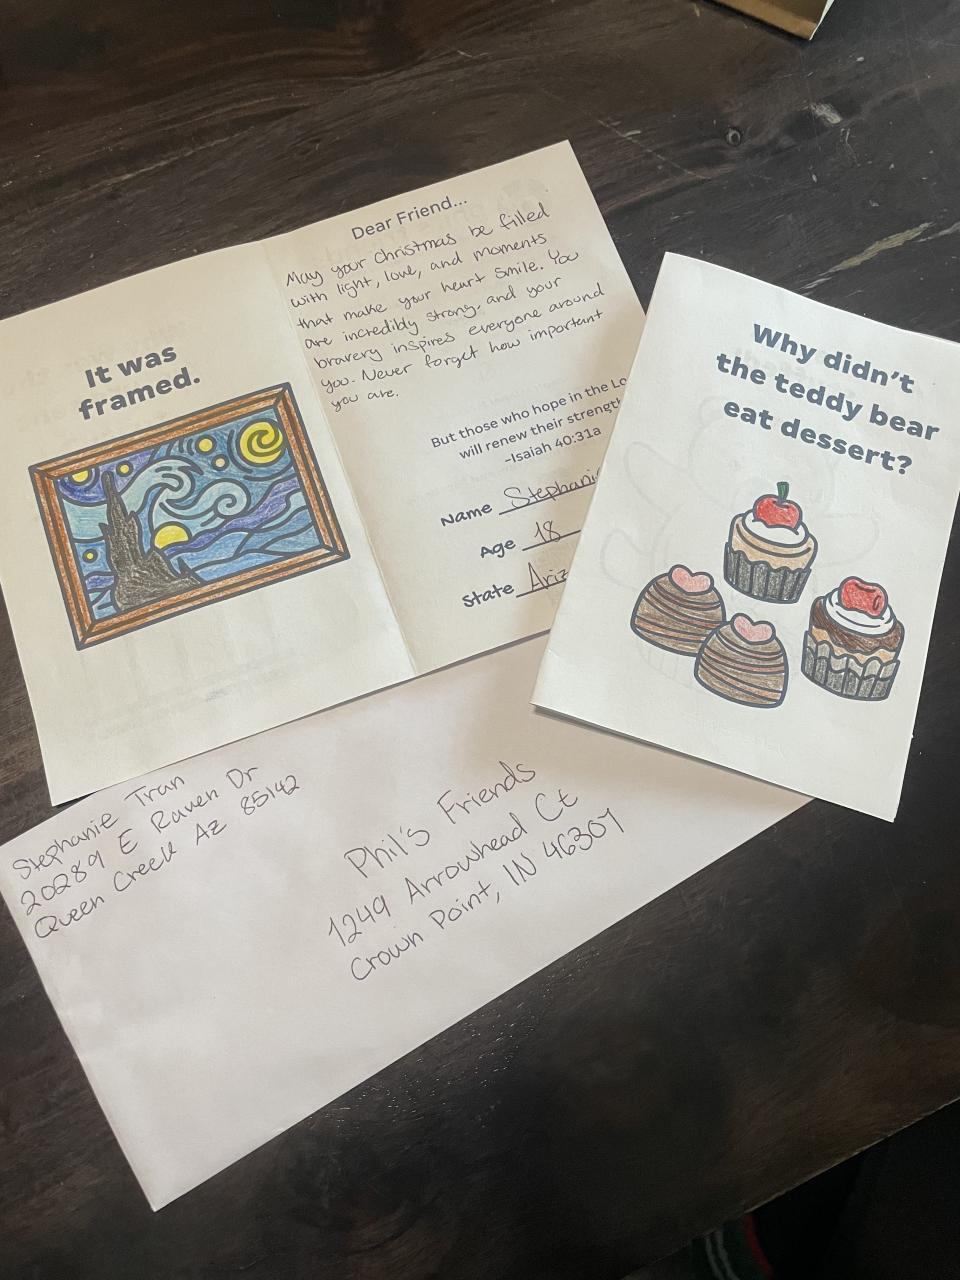 It was
framed.
Dear Friend...
May your Christmas be filled
with light, love, and moments
that make your heart smile. You
are incredibly strong, and your
bravery inspires everyone around
you. Never forget how important
you are.
But those who hope in the Lo
will renew their strengt
-Isaiah 40:31a
Name Stephani
Age 18
State Ariz
Why didn't
the teddy bear
eat dessert?
Stephanie Tran
20289 E Raven Dr
Queen Creek AZ 85142
Phil's Friends
1249 Arrowhead Ct
Crown Point, IN 46307